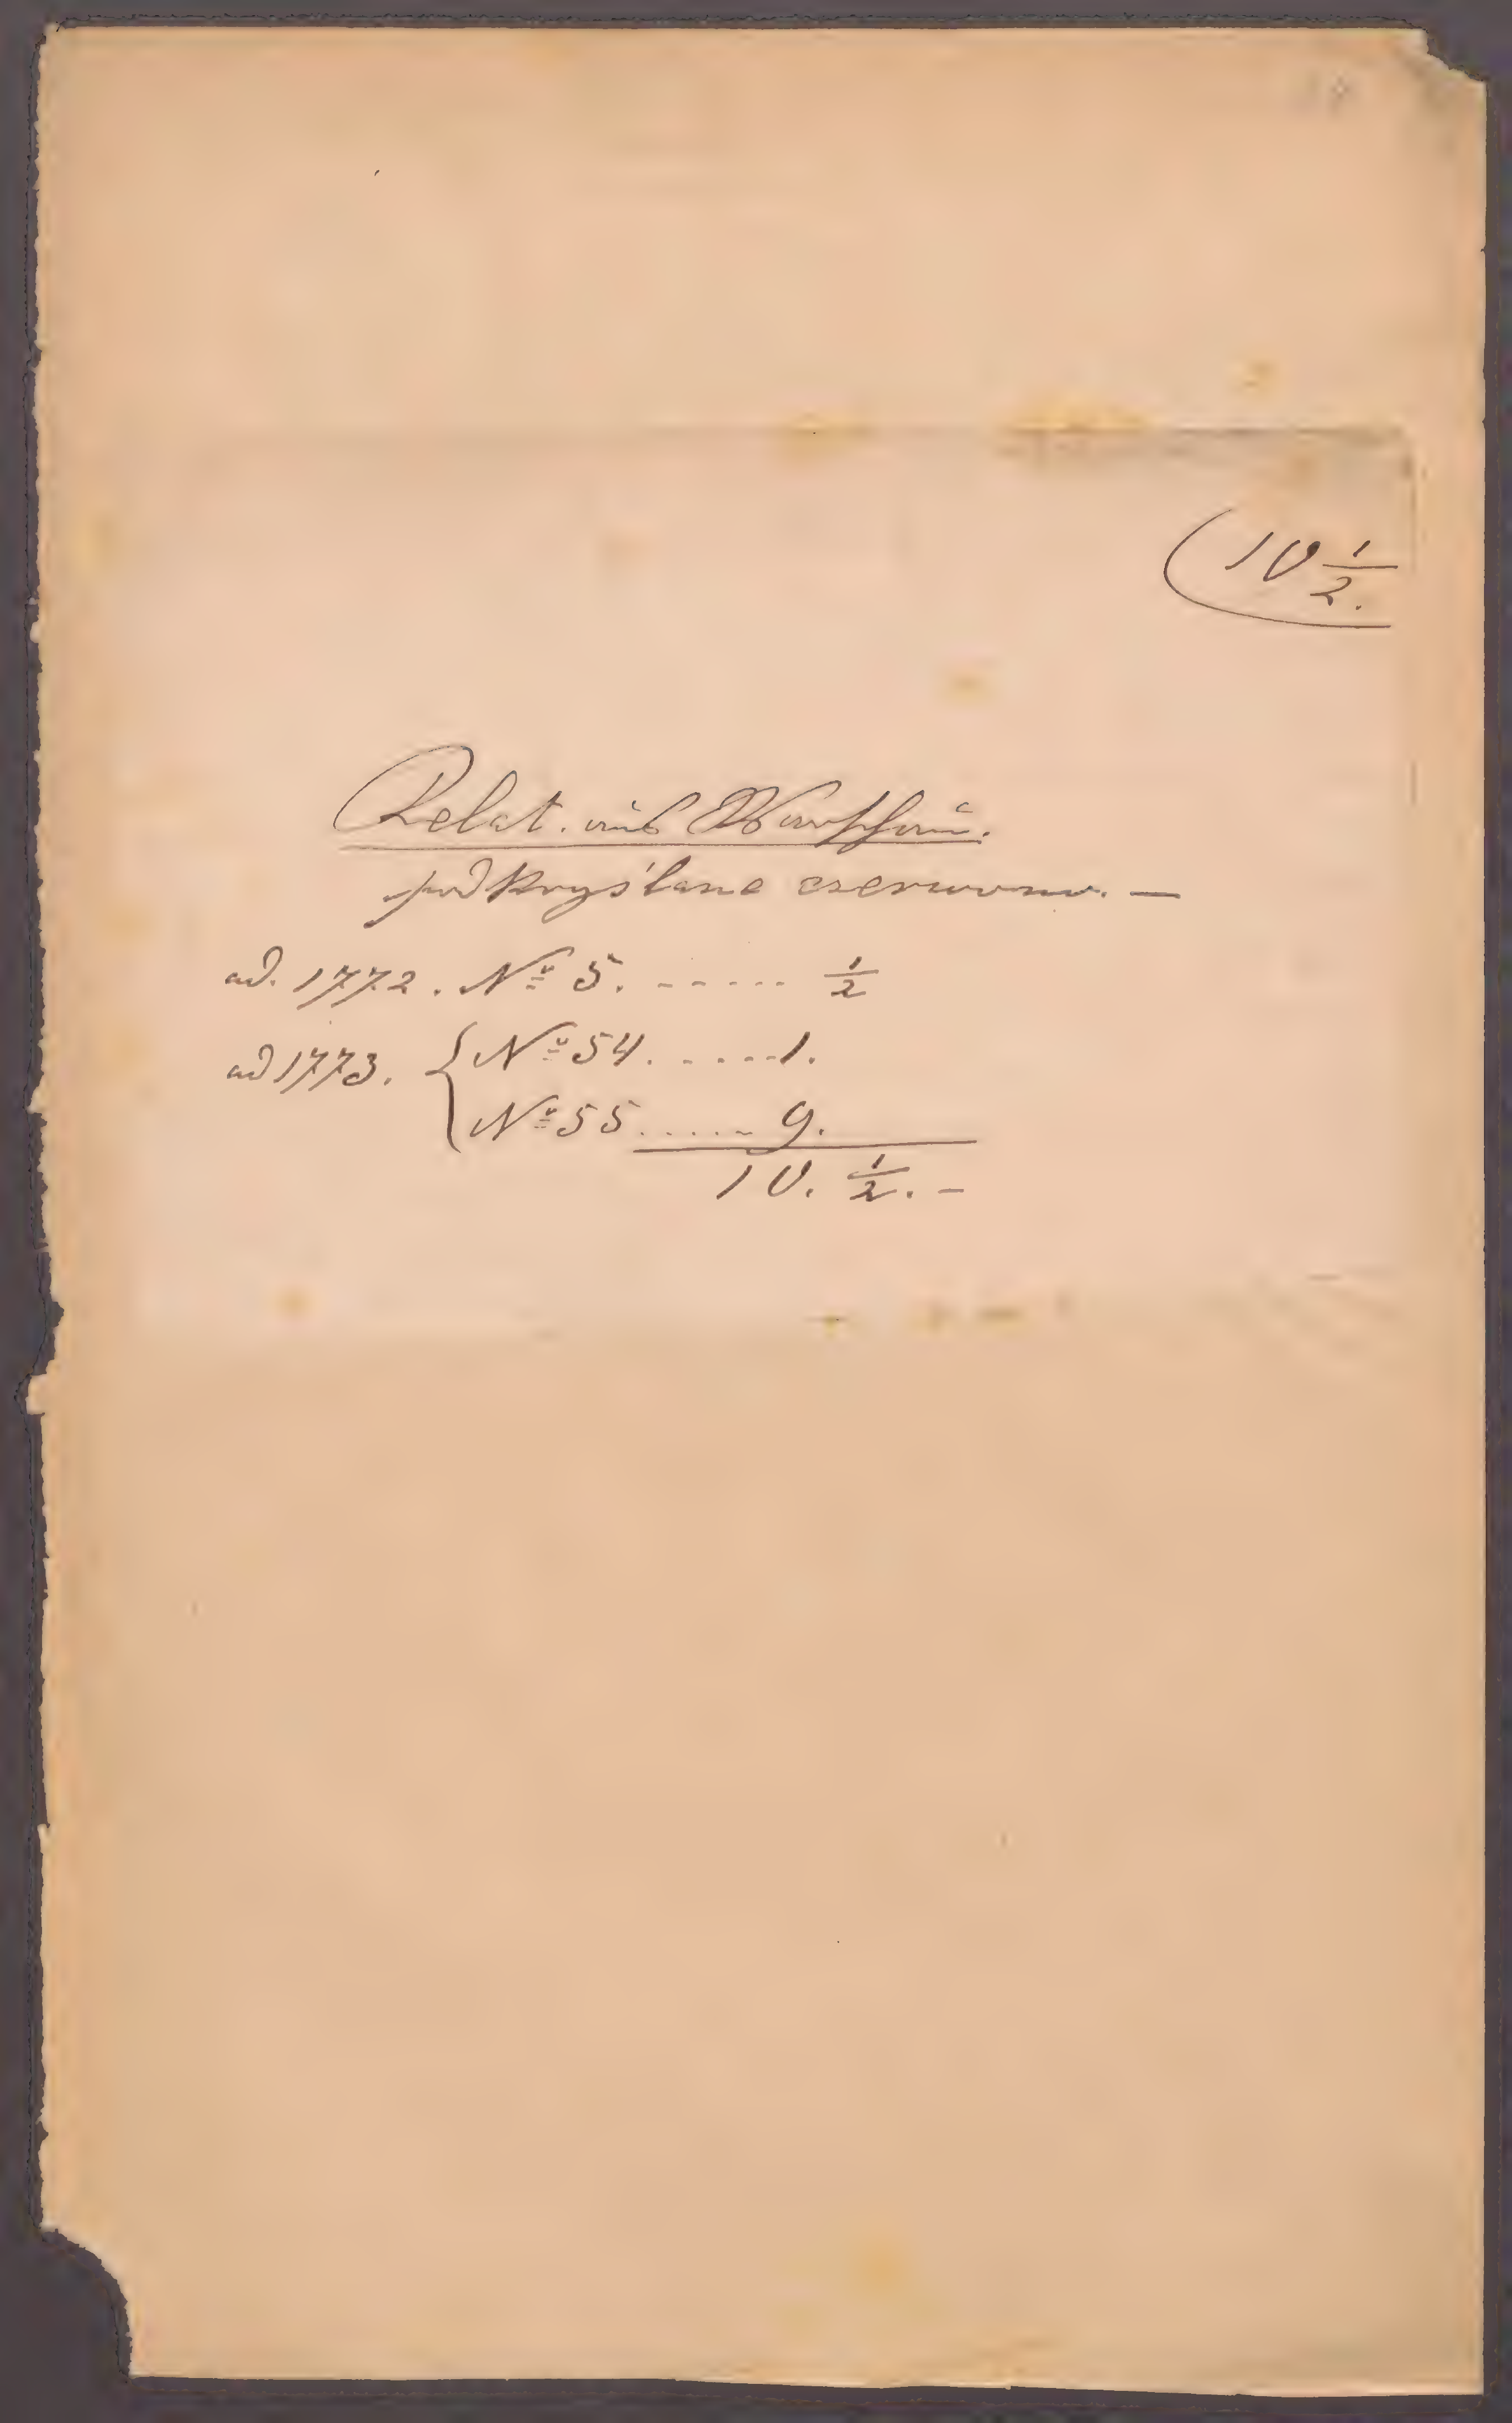 10 1/2.
Relat. aus Warschau.
podkryślane czerwono. —
ad. 1772. No 5. ...... 1/2
ad 1773. { No 54. ..... 1.
{ No 55 ...... 9.
10. 1/2. -